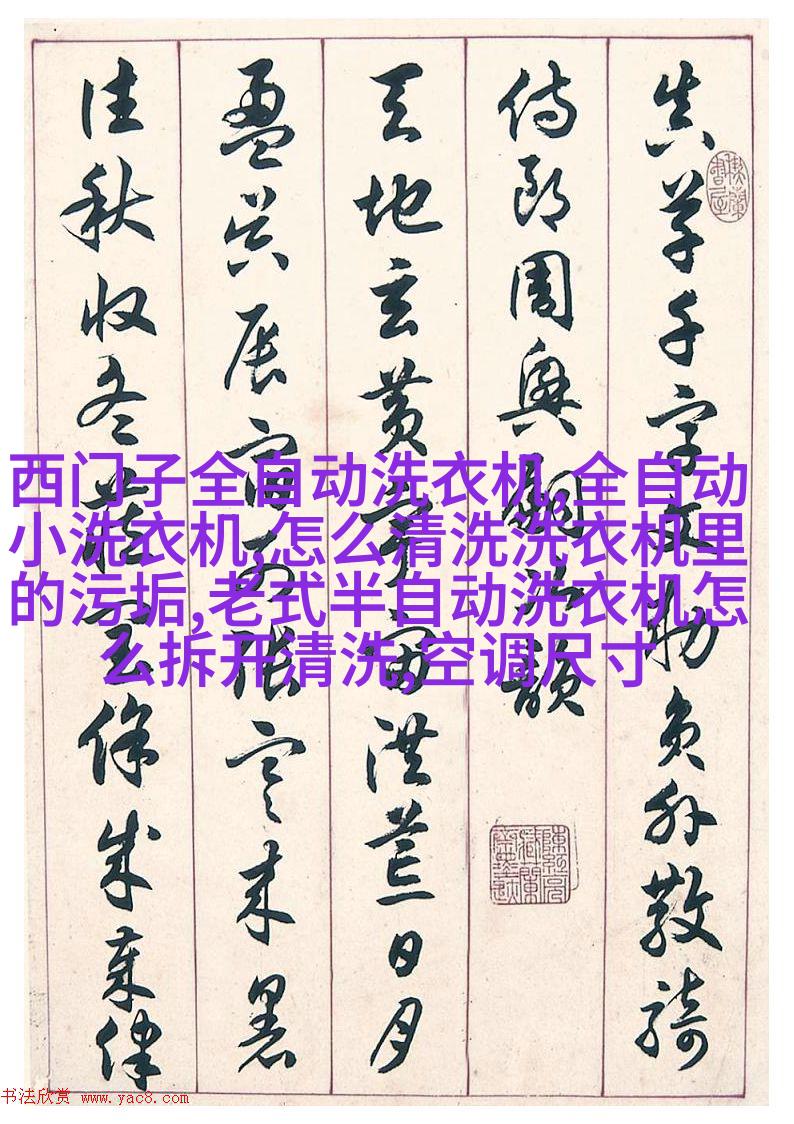 真草千字文勑員外散騎
侍郎周興嗣次韻
天地玄黃宇宙洪荒日月
盈昃辰宿列張寒來暑
往秋收冬藏閏餘成歲律
西门子全自动洗衣机,全自动
小洗衣机,怎么清洗洗衣机里
的污垢,老式半自动洗衣机怎
么拆开清洗,空调尺寸
书法欣赏 www.yac8.com